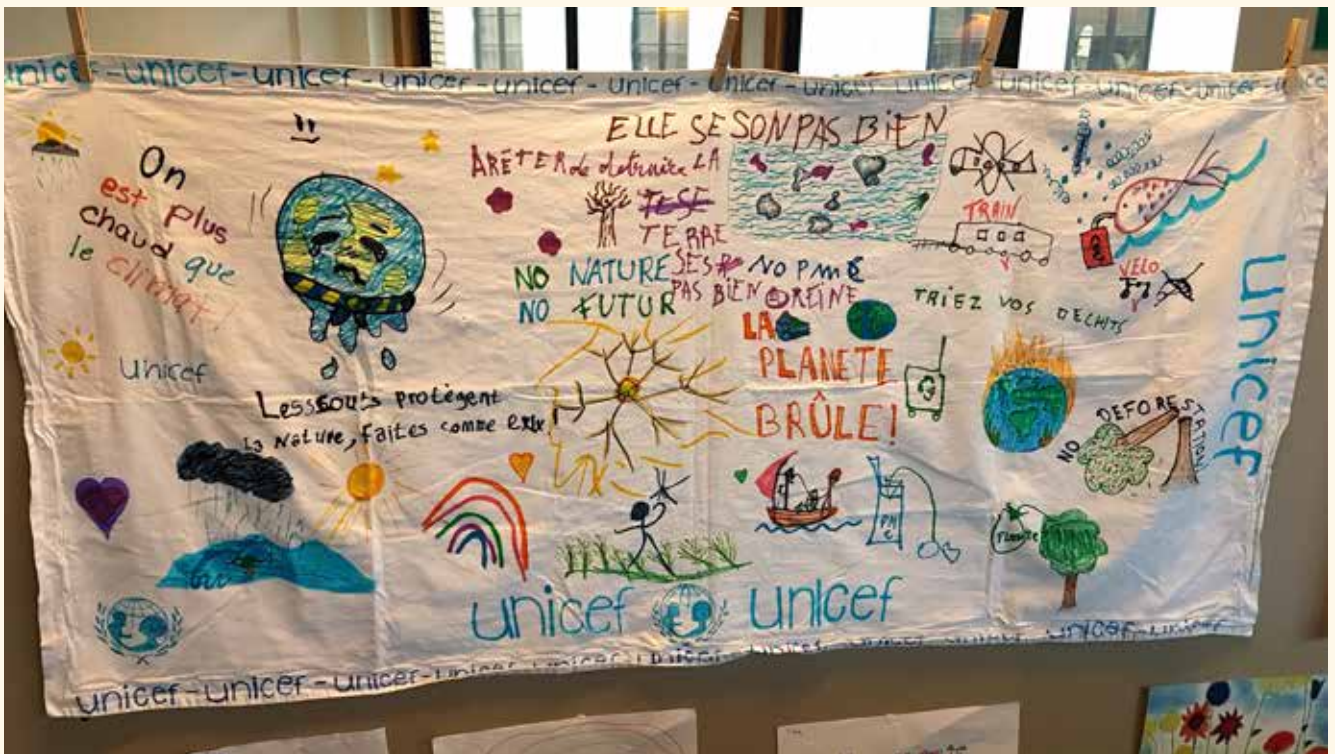 unicef-unicef-unicef-unicef-unicef-unicef-unicef-unicef-unicef-unicef-unicef-unicef
On
est plus
chaud que
le climat!
unicef
ELLE SE SON PAS BIEN
ARÊTER de detruire LA
TERRE
SES
PAS BIEN
NO NATURE
NO FUTUR
NO PMC
OREINE
TRAIN
VELO
TRIEZ VOS DECHITS
LA
PLANETE
BRÛLE!
Lesscouts protègent
la Nature, faites comme eux!
NO DEFORESTATION
PMC
unicef
unicef unicef
unicef-unicef-unicef-unicef-unicef-unicef-unicef-unicef-unicef-unicef